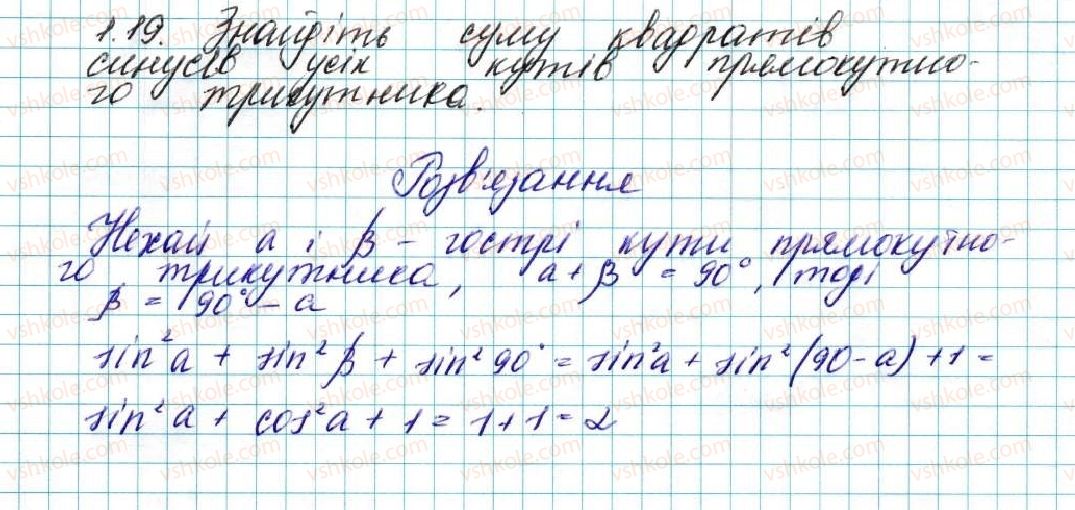 1.19. Знайдіть суму квадратів
синусів усіх кутів прямокутно-
го трикутника.
Розв'язання
Нехай a і β - гострі кути прямокутно-
го трикутника, a + β = 90°, тоді
β = 90° - a
sin²a + sin²β + sin²90° = sin²a + sin²(90-a) + 1 =
sin²a + cos²a + 1 = 1+1 = 2